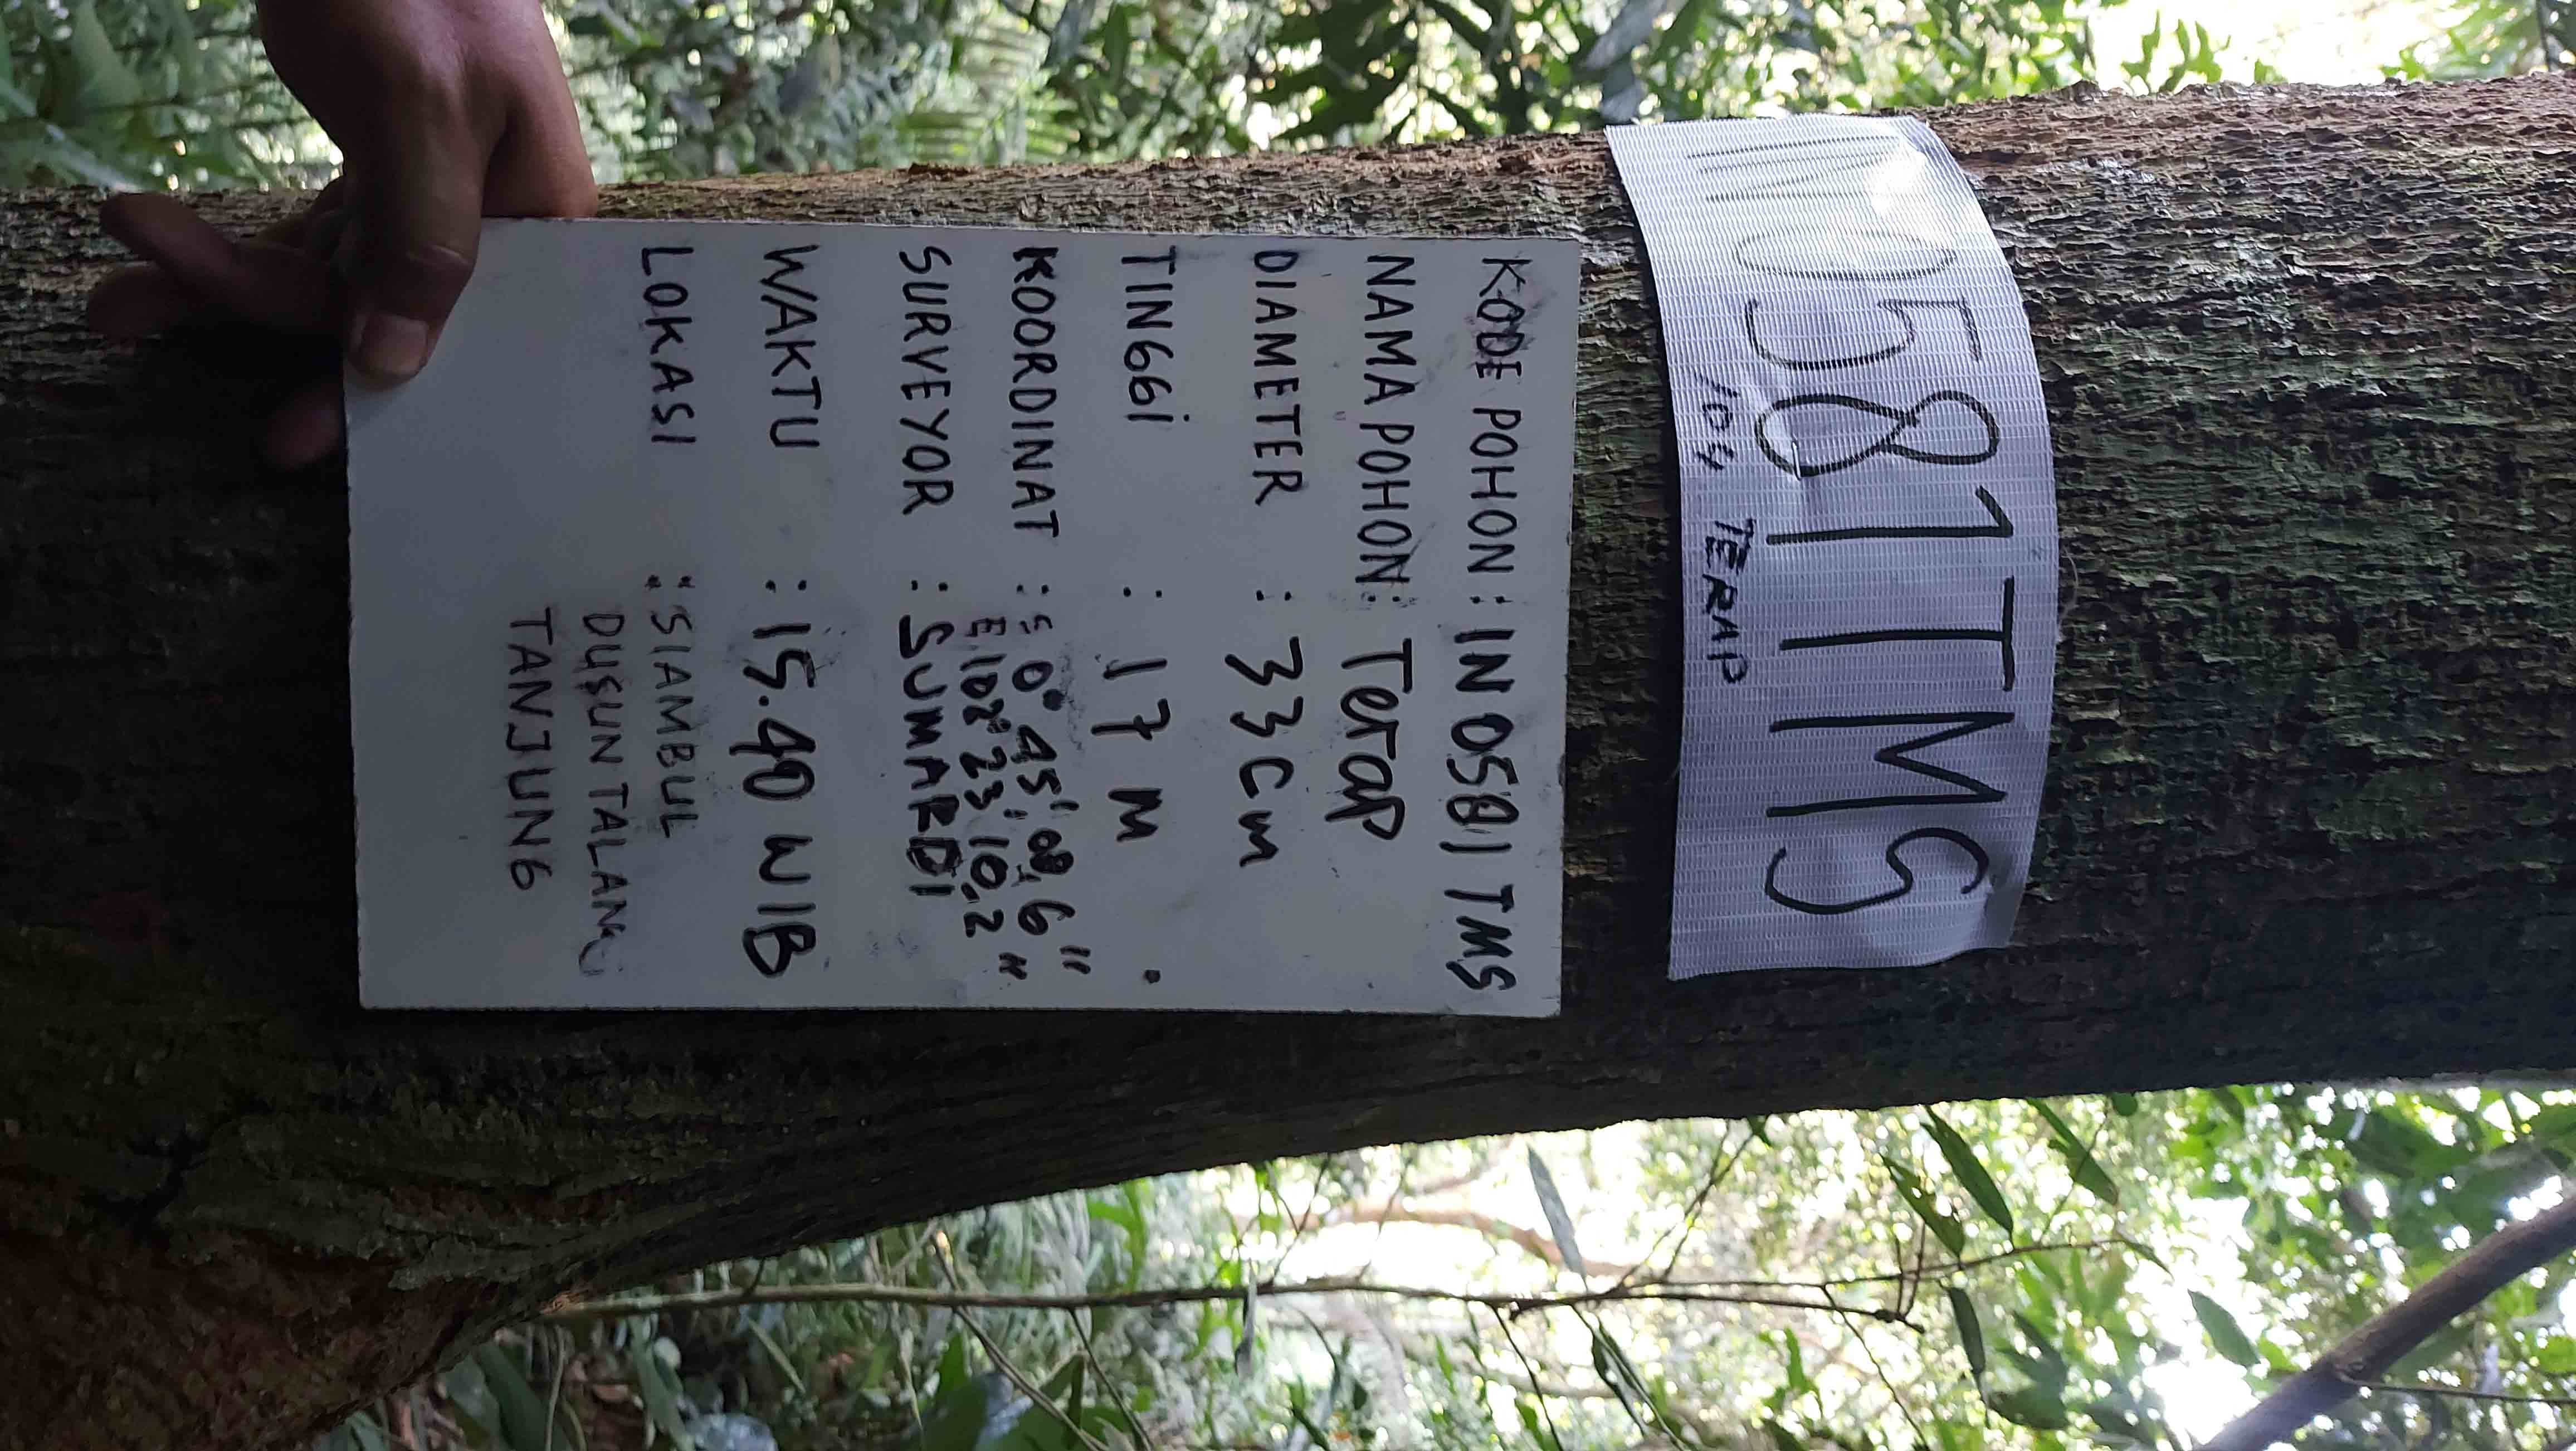 IN0581TMS
104 TERAP
KODE POHON : IN 0581 TMS
NAMA POHON : Terap
DIAMETER : 33 Cm
TINGGI : 17 M
KOORDINAT : S 0° 45', 08, 6"
E 102° 23' 10,2"
SURVEYOR : SUMARDI
WAKTU : 15.40 WIB
LOKASI : SIAMBUL
DUSUN TALANG
TANJUNG